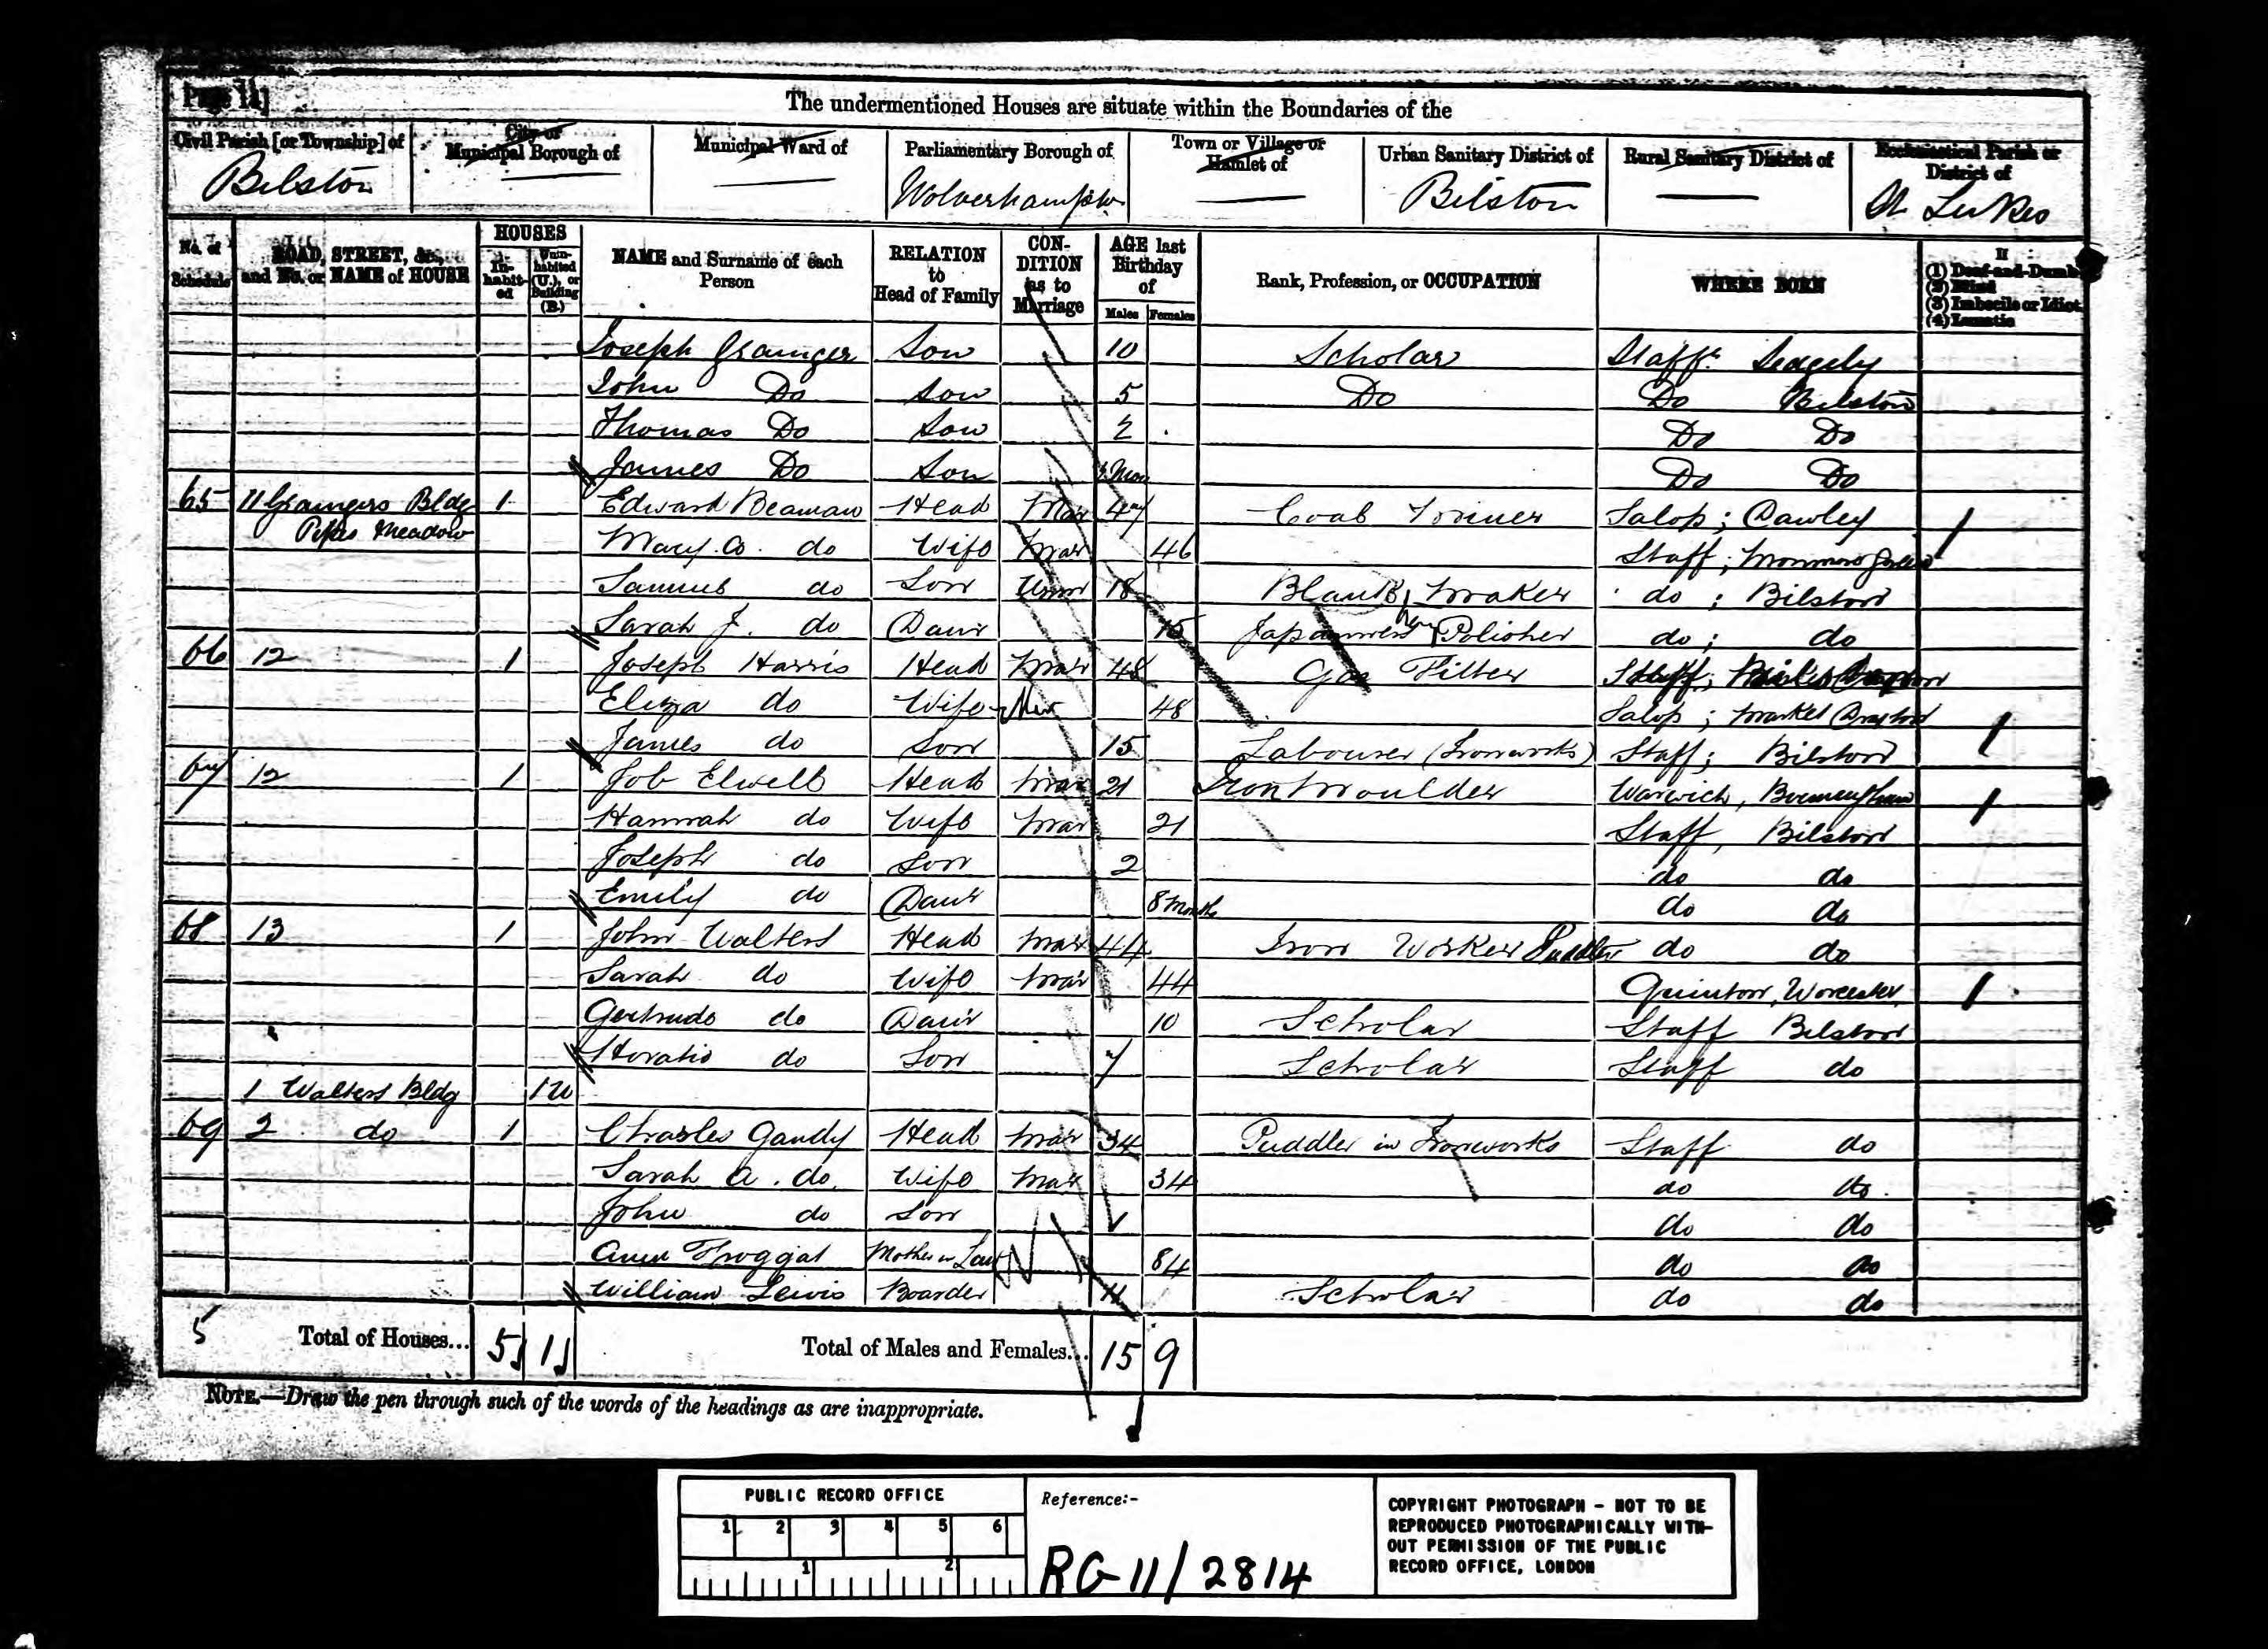 Page 11]
The undermentioned Houses are situate within the Boundaries of the
Civil Parish [or Township] of
City or Municipal Borough of
Municipal Ward of
Parliamentary Borough of
Town or Village or Hamlet of
Urban Sanitary District of
Rural Sanitary District of
Ecclesiastical Parish or District of
Bilston
Wolverhampton
Bilston
St Lukes
No. of Schedule
ROAD, STREET, &c., and No. or NAME of HOUSE
HOUSES
In-habit-ed
Unin-habited (U.), or Building (B.)
NAME and Surname of each Person
RELATION to Head of Family
CON-DITION as to Marriage
AGE last Birthday of
Males
Females
Rank, Profession, or OCCUPATION
WHERE BORN
If
(1) Deaf-and-Dumb
(2) Blind
(3) Imbecile or Idiot
(4) Lunatic
Joseph Grainger Son 10 Scholar Staffs Sedgely
John Do Son 5 Do Do Bilston
Thomas Do Son 2 Do Do
James Do Son Mon Do Do
65 11 Graingers Bldg 1 Edward Beaman Head Mar 47 Coal Miner Salop; Dawley
Pipes Meadow Mary A. do Wife Mar 46 Staff; Monmore Green
Samuel do Son Unm 18 Blank Maker do; Bilston
Sarah J. do Daur 15 Polisher do; do
66 12 1 Joseph Harris Head Mar 48 Gas Fitter Staff;
Eliza do Wife Mar 48 Salop; Market Drayton
James do Son 15 Labourer (Ironworks) Staff; Bilston
67 12 1 Job Elwell Head Mar 21 Iron Moulder Warwick, Birmingham
Hannah do Wife Mar 21 Staff, Bilston
Joseph do Son 2 do do
Emily do Daur 8 Months do do
68 13 1 John Walters Head Mar 44 Iron Worker Puddler do do
Sarah do Wife Mar 44 Quinton, Worcester
Gertrude do Daur 10 Scholar Staff Bilston
Horatio do Son 7 Scholar Staff do
1 Walters Bldg 1U
69 2 do 1 Charles Gandy Head Mar 34 Puddler in Ironworks Staff do
Sarah A. do. Wife Mar 34 do do.
John do Son 1 do do
Ann Froggat Mother in Law W 84 do do
William Lewis Boarder 11 Scholar do do
5 Total of Houses... 5 1 Total of Males and Females... 15 9
NOTE.—Draw the pen through such of the words of the headings as are inappropriate.
PUBLIC RECORD OFFICE
1 2 3 4 5 6
1 2
Reference:-
RG 11/2814
COPYRIGHT PHOTOGRAPH - NOT TO BE
REPRODUCED PHOTOGRAPHICALLY WITH-
OUT PERMISSION OF THE PUBLIC
RECORD OFFICE, LONDON